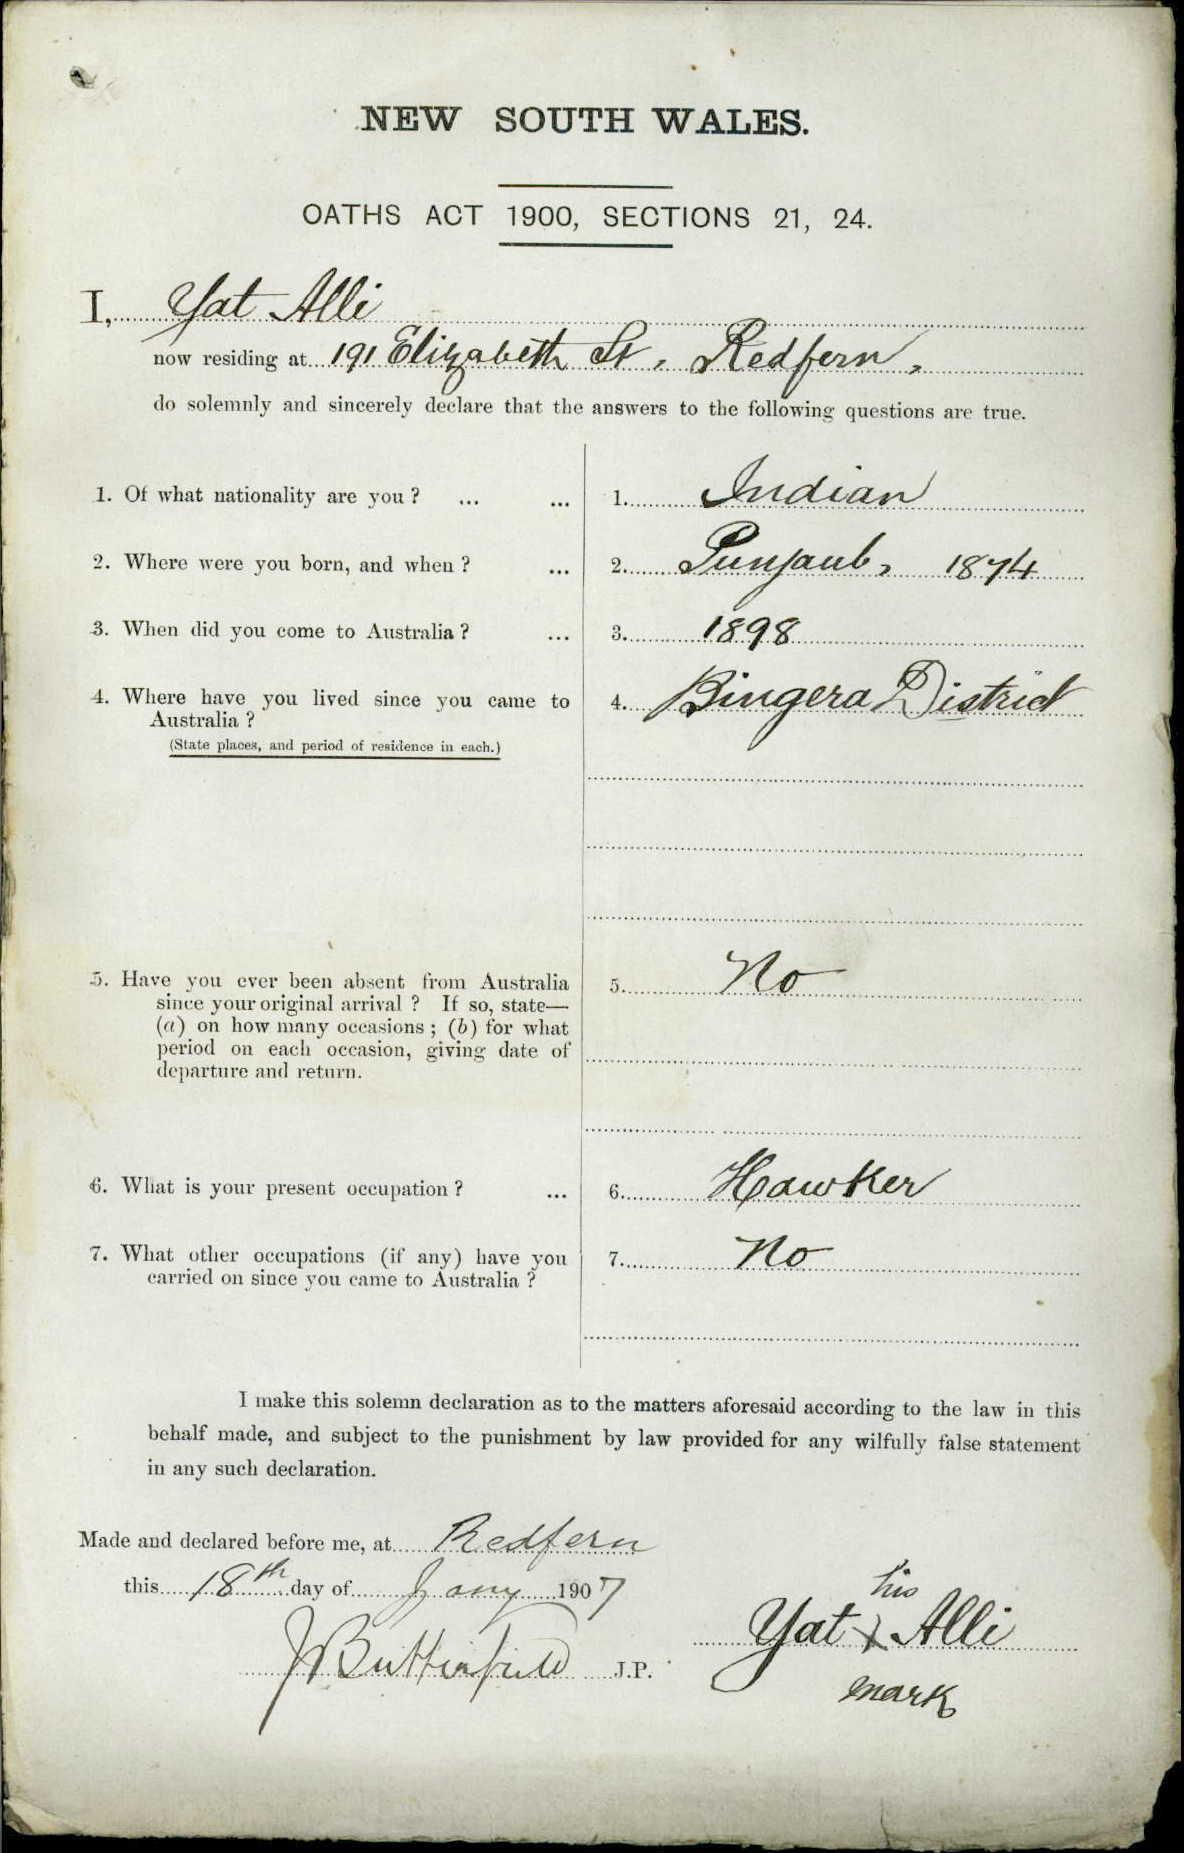 NEW SOUTH WALES.
OATHS ACT 1900, SECTIONS 21, 24.
I, Yat Alli
now residing at 191 Elizabeth St, Redfern,
do solemnly and sincerely declare that the answers to the following questions are true.
1. Of what nationality are you? ... ... 1. Indian
2. Where were you born, and when? ... 2. Punjaub, 1874
3. When did you come to Australia? ... 3. 1898
4. Where have you lived since you came to 4. Bingera District
Australia?
(State places, and period of residence in each.)
5. Have you ever been absent from Australia 5. No
since your original arrival? If so, state—
(a) on how many occasions; (b) for what
period on each occasion, giving date of
departure and return.
6. What is your present occupation? ... 6. Hawker
7. What other occupations (if any) have you 7. No
carried on since you came to Australia?
I make this solemn declaration as to the matters aforesaid according to the law in this
behalf made, and subject to the punishment by law provided for any wilfully false statement
in any such declaration.
Made and declared before me, at Redfern
this 18th day of Jany 1907
his
Yat X Alli
mark
J Butterfield J.P.